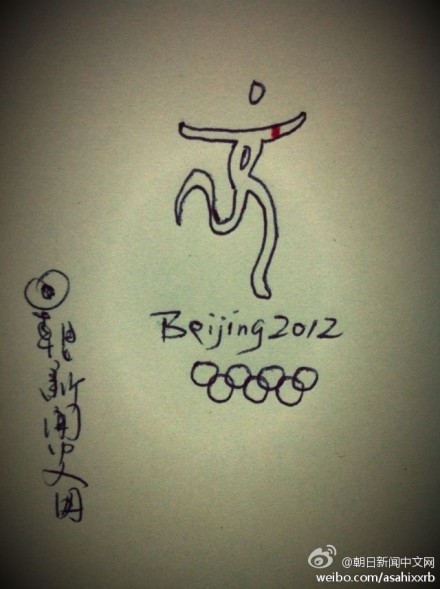 Beijing 2012
@朝日新闻中文网
@朝日新闻中文网
weibo.com/asahixxrb